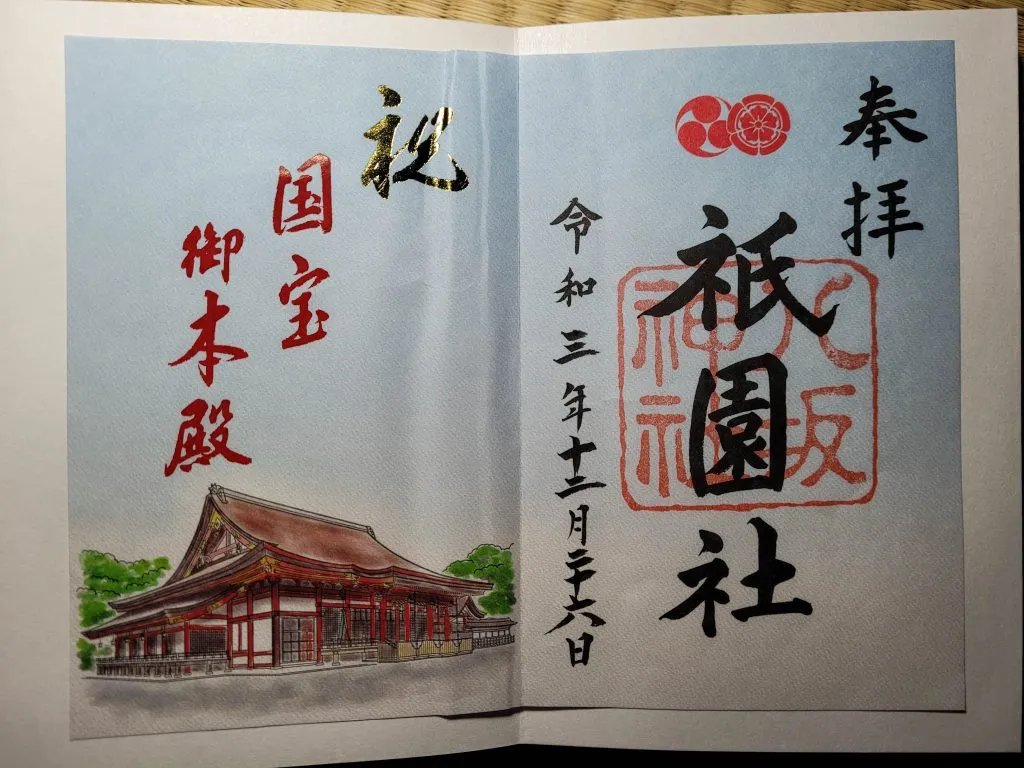 奉拝
祇園社
八坂神社
令和三年十二月二十六日
祝
国宝
御本殿